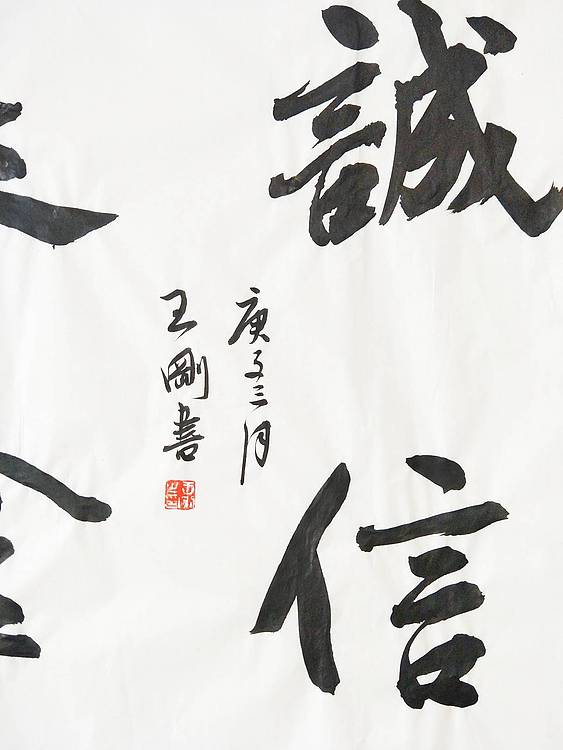 誠信
庚子三月
王剛書